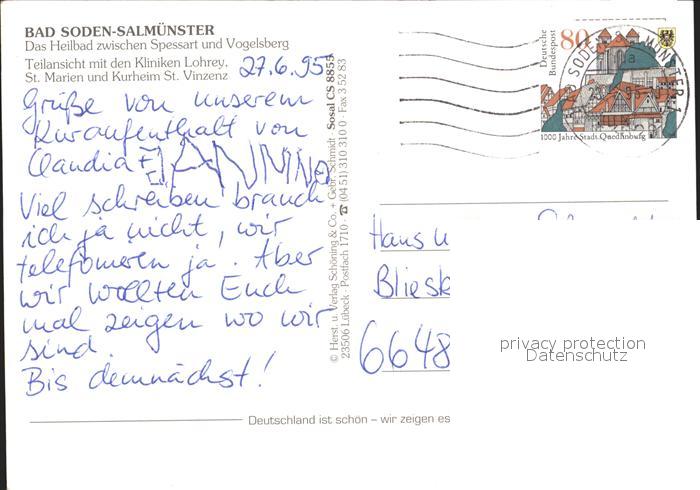 BAD SODEN-SALMÜNSTER
Das Heilbad zwischen Spessart und Vogelsberg
Teilansicht mit den Kliniken Lohrey,
St. Marien und Kurheim St. Vinzenz
27.6.95
Grüße von unserem
Kuraufenthalt von
Claudia +
Viel schreiben brauch
ich ja nicht, wir
telefonieren ja. Aber
wir wollten Euch
mal zeigen wo wir
sind.
Bis demnächst!
© Herst. u. Verlag Schöning & Co. + Gebr. Schmidt · Sosal CS 8855
23506 Lübeck · Postfach 1710 · ☎ (04 51) 310 310 0 · Fax 3 52 83
Deutsche
Bundespost
80
1000 Jahre Stadt Quedlinburg
SODEN
MÜNSTER
Hans u
Bliesk
6648
privacy protection
Datenschutz
Deutschland ist schön – wir zeigen es